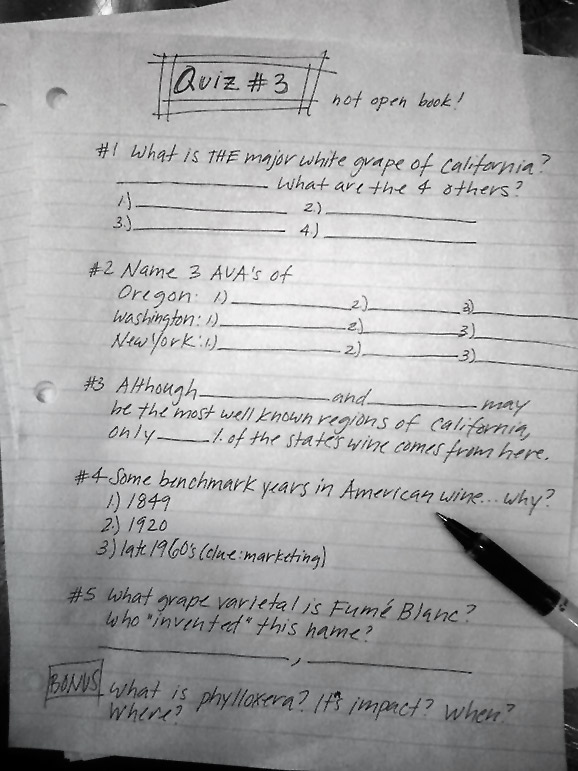 Quiz #3
not open book!
#1 What is THE major white grape of California?
__________ What are the 4 others?
1) __________ 2) __________
3.) __________ 4.) __________
#2 Name 3 AVA's of
Oregon: 1) __________ 2) __________ 3) __________
Washington: 1) __________ 2) __________ 3) __________
New York: 1) __________ 2) __________ 3) __________
#3 Although __________ and __________ may
be the most well known regions of California,
only _____ % of the state's wine comes from here.
#4 Some benchmark years in American wine... why?
1) 1849
2) 1920
3) late 1960's (clue: marketing)
#5 What grape varietal is Fumé Blanc?
Who "invented" this name?
__________, __________
BONUS What is phylloxera? It's impact? When?
Where?